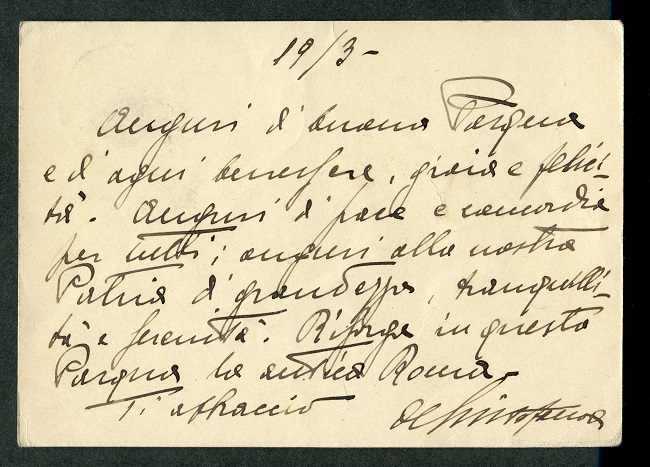 19/3-
Auguri di buona Pasqua
e di ogni benessere, gioia e felici-
tà. Auguri di pace e concordia
per tutti; auguri alla nostra
Patria di grandezza, tranquilli-
tà e serenità. Risorga in questa
Pasqua la antica Roma.
Ti abbraccio